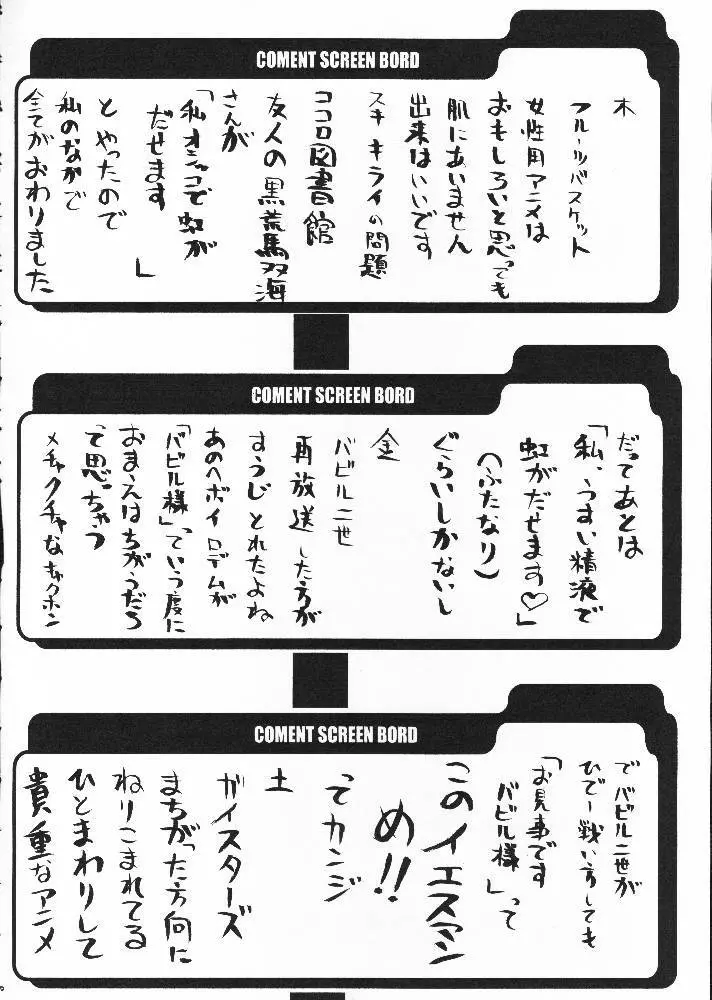 COMENT SCREEN BORD
木
フルーツバスケット
女性用アニメは
おもしろいと思っても
肌にあいません
出来はいいです
スキキライの問題
ココロ図書館
友人の黒荒馬双海
さんが
「私オシッコで虹が
だせます
」
とやったので
私のなかで
全てがおわりました
COMENT SCREEN BORD
だってあとは
「私、うすい精液で
虹がだせます♡」
(ふたなり)
ぐらいしかないし
金
バビル二世
再放送した方が
すうじとれたよね
あのヘボイロデムが
「バビル様」っていう度に
おまえはちがうだろ
って思っちゃう
メチャクチャなキャクホン
COMENT SCREEN BORD
でバビル二世が
ひでー戦い方しても
「お見事です
バビル様」って
このイエスマン
め!!
てカンジ
土
ガイスターズ
まちがった方向に
ねりこまれてる
ひとまわりして
貴重なアニメ